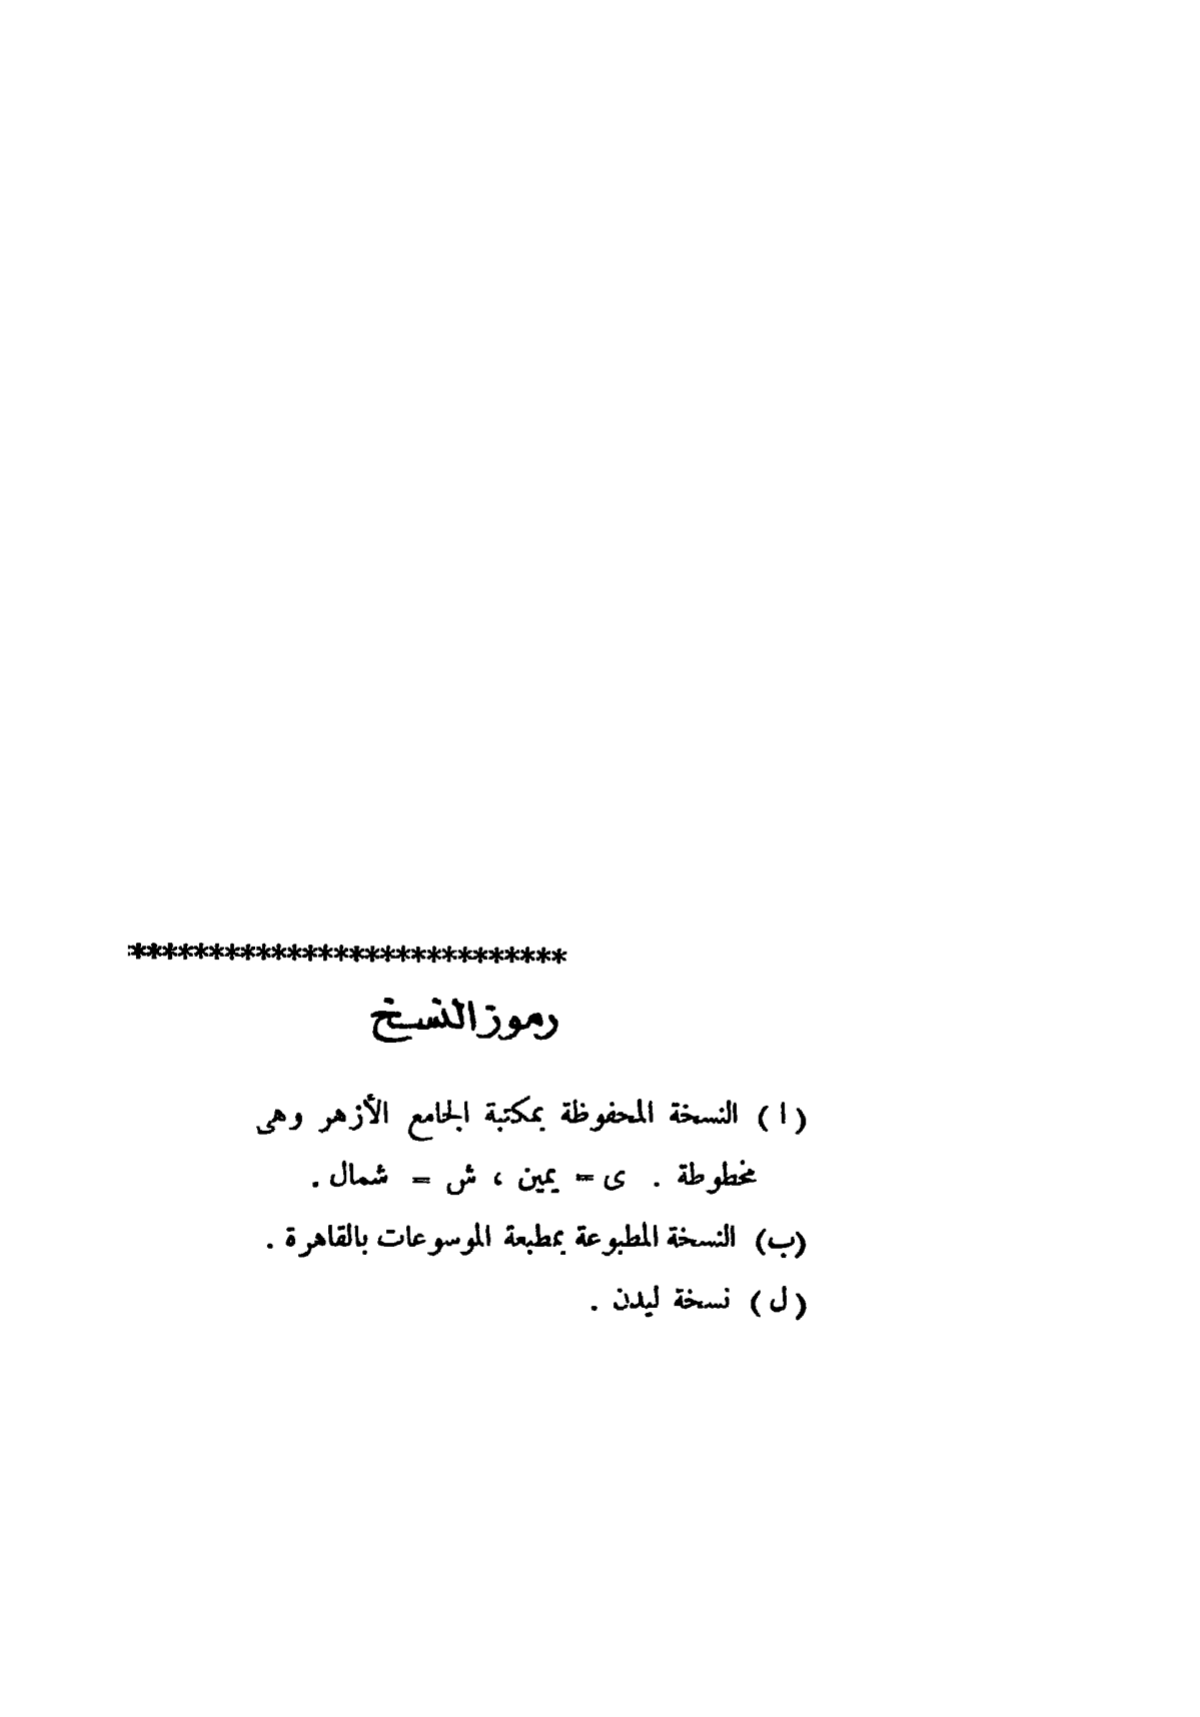 ****************************
رموز النسخ
( ا ) النسخة المحفوظة بمكتبة الجامع الأزهر وهى
مخطوطة . ى = يمين ، ش = شمال .
(ب) النسخة المطبوعة بمطبعة الموسوعات بالقاهرة .
( ل ) نسخة ليدن .